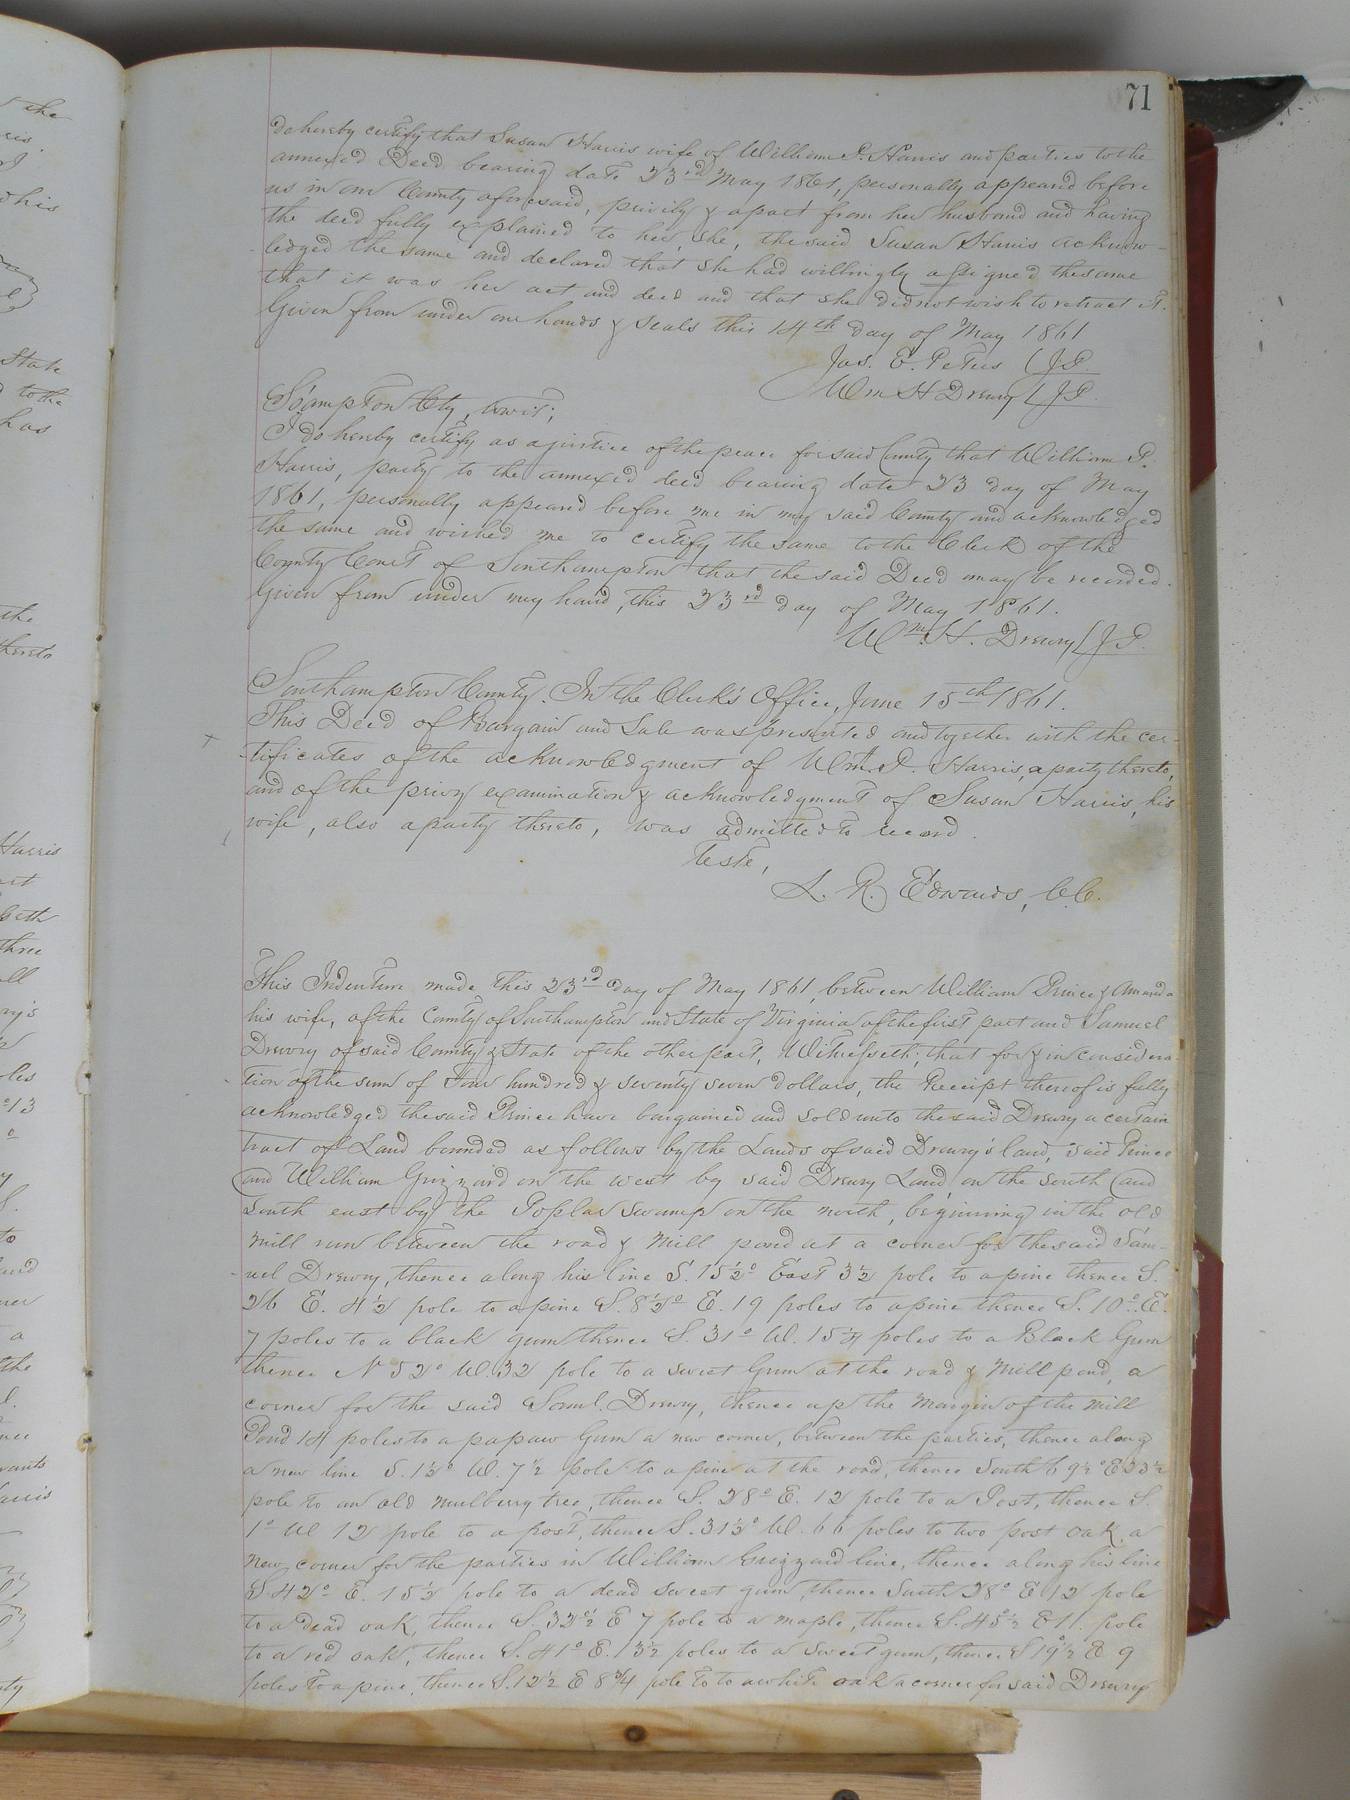 71
do hereby certify that Susan Harris wife of William P. Harris and parties to the
annexed Deed bearing date 23rd May 1861, personally appeared before
us in our County aforesaid, privily & apart from her husband and having
the deed fully explained to her, she, the said Susan Harris acknow-
ledged the same and declared that she had willingly assigned the same
that it was her act and deed and that she did not wish to retract it.
Given from under our hands & seals this 14th day of May 1861
Jas. E. Peters (J.P.
Wm H Drewry (J.P.
S'ampton Cty, towit;
I do hereby certify as a justice of the peace for said County that William P.
Harris, party to the annexed deed bearing date 23 day of May
1861, personally appeared before me in my said County and acknowledged
the same and wished me to certify the same to the Clerk of the
County Court of Southampton that the said Deed may be recorded.
Given from under my hand, this 23rd day of May 1861.
Wm. H. Drewry (J.P.
Southampton County. In the Clerk's Office, June 15th 1861.
This Deed of Bargain and Sale was presented and together with the cer-
tificates of the acknowledgment of Wm. P. Harris, a party thereto,
and of the privy examination & acknowledgment of Susan Harris, his
wife, also a party thereto, was admitted to record.
Teste,
L. R. Edwards, C.C.
This Indenture made this 23rd day of May 1861, between William Prince & Amanda
his wife, of the County of Southampton and State of Virginia of the first part and Samuel
Drewry of said County & State of the other part, Witnesseth; that for & in considera-
tion of the sum of Four hundred & seventy seven dollars, the Receipt thereof is fully
acknowledged the said Prince have bargained and sold unto the said Drewry a certain
tract of Land bounded as follows by the Lands of said Drewry's land, said Prince
and William Grizzard on the west by said Drewry Land on the south and
south east by the Poplar Swamp on the north, beginning in the old
mill run between the road & Mill pond at a corner for the said Sam-
uel Drewry, thence along his line S. 15½° East 3½ pole to a pine thence S.
26 E. 4½ pole to a pine S. 8½° E. 19 poles to a pine thence S. 10° E.
7 poles to a black gum thence S. 31° W. 15¼ poles to a Black Gum
thence N 52° W. 32 pole to a sweet Gum at the road & Mill pond, a
corner for the said Saml. Drewry, thence up the Margin of the Mill
Pond 14 poles to a papaw Gum a new corner, between the parties, thence along
a new line S. 1½° W. 7½ pole to a pine at the road, thence South 69½° E 33½
pole to an old mulberry tree, thence S. 28° E. 12 pole to a Post, thence S.
1° W 12 pole to a post, thence S. 31½° W. 66 poles to two post oak, a
new corner for the parties in William Grizzard line, thence along his line
S 42° E. 15½ pole to a dead sweet gum, thence South 28° E 12 pole
to a dead oak, thence S. 32½° E 7 pole to a maple, thence S. 45½° E 11. pole
to a red oak, thence S. 41° E. 13½ poles to a sweet gum, thence S 19½° E 9
poles to a pine, thence S. 12½ E 8¾ pole to to a white oak a corner for said Drewry